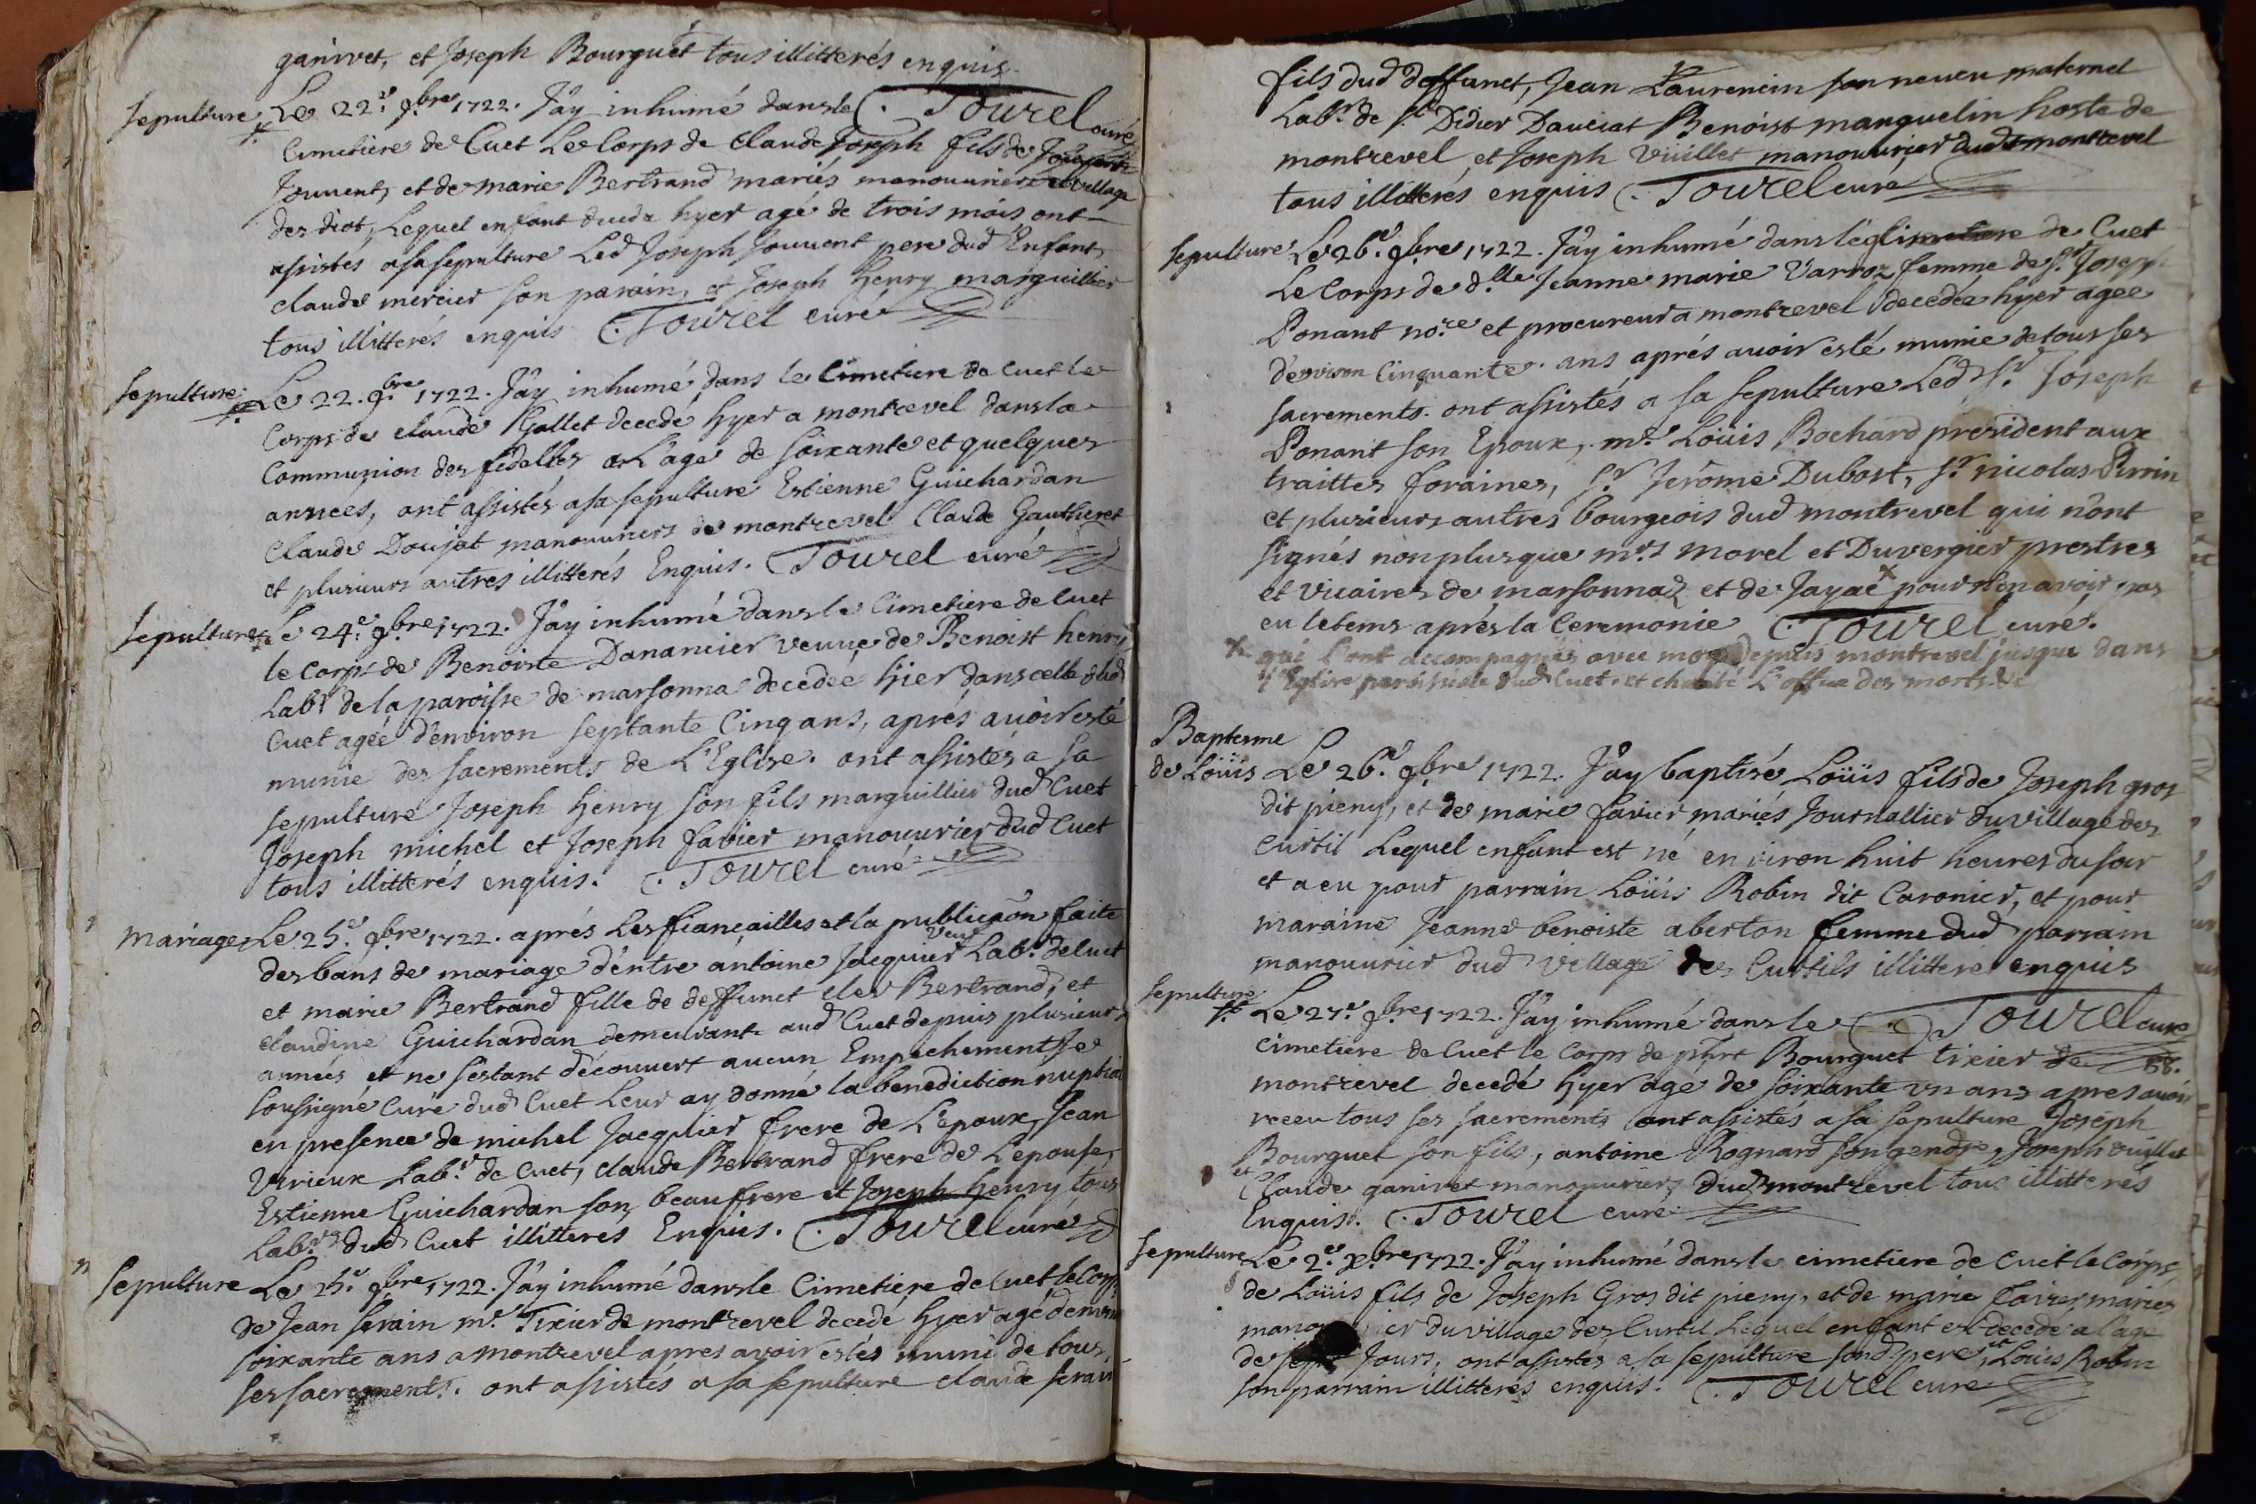 ganivet, et Joseph Bourguet tous illitterés enquis
Sepulture Le 22e. 9bre 1722. J'ay inhumé dans le Tourel curé
Cimetiere de Cuet Le Corps de Claude Joseph fils de Joseph
Jouvent, et de marie Bertrand mariés manouuriers village
des diot, Lequel enfant deceda hyer agé de trois mois ont
assistés a sa sepulture Led Joseph Jouuent pere dud Enfant,
claude mercier son parain, et Joseph Henry marguillier
tous illitterés enquis Tourel curé
Sepulture Le 22. 9bre 1722. J'ay inhumé dans le Cimetiere de Cuet le
Corps de claude Gallet decedé hyer a montrevel dans la
Communion des fidelles a L'age de soixante et quelques
années, ont assistés a sa sepulture Estienne Guichardan
Claude Doujat manouuriers de montrevel Claude Gautheret
et plusieurs autres illitterés Enquis. Tourel curé
Sepulture Le 24e. 9bre 1722. J'ay inhumé dans le Cimetiere de Cuet
le corps de Benoiste Danancier veuue de Benoist henry
Labr de la paroisse de marsonna decedée hier dans celle dud
Cuet agée d'environ septante Cinq ans, aprés auoir esté
munie des sacrements de L'Eglise. ont assistés a sa
sepulture Joseph henry son fils marguillier dud Cuet
Joseph michel et Joseph favier manouurier dud Cuet
tous illitterés enquis. Tourel curé
Mariage Le 25e. 9bre 1722. aprés Les fiancailles et la publicaõn faite
des bans de mariage d'entre antoine Jacquier veuf Labr. de Cuet
et marie Bertrand fille de deffunct clev Bertrand, et
claudine Guichardan demeurante aud Cuet depuis plusieurs
années et ne s'estant découvert aucun Empechement Je
soussigné Curé dud Cuet Leur ay donné la benediction nuptial
en presence de michel Jacquier frere de L'epoux, Jean
Virieux Labr. de Cuet, claude Bertrand frere de L'epouse,
Estienne Guichardan son beaufrere et Joseph Henry tous
Labrs dud Cuet illitterés Enquis. Tourel curé
Sepulture Le 25e 9bre 1722. J'ay inhumé dans le Cimetiere de Cuet le Corps
de Jean serain me. Tixier de montrevel decedé hyer agé d'environ
soixante ans a montrevel apres avoir estés muni de tous
ses sacrements. ont assistés a sa sepulture claude serain
fils dud deffunct, Jean Laurencin son neueu maternel
Labr. de St Didier Dauciat Benoist manquelin hoste de
montrevel et Joseph Vuillet manouurier dud montrevel
tous illitterés enquis Tourel curé
Sepulture Le 26e. 9bre 1722. J'ay inhumé dans l'église de Cuet
Le Corps de dlle Jeanne marie Varroz femme de sr. Joseph
Ponant nore et procureur a montrevel decedée hyer agée
d'environ Cinquante ans aprés auoir esté munie de tous ses
sacrements. ont assistés a sa sepulture Led sr. Joseph
Ponant son Epoux, mr. Loüis Bochard president aux
traittes foraines, sr Jerôme Dubost, sr. nicolas Perrin
et plusieurs autres bourgeois dud montrevel qui n'ont
signés nonplus que mrs morel et Duvergier prestres
et vicaires de marsonnaz et de Jayac x pour n'en avoir pas
eu le tems aprés la Ceremonie Tourel curé.
x qui l'ont accompagnés avec moy depuis montrevel jusque dans
l'Eglise paroissiale dud Cuet. et chanté L'office des morts
Baptesme
de Loüis Le 26e. 9bre 1722. J'ay baptisé Loüis fils de Joseph gros
dit pieny, et de marie favier mariés Journallier du village des
Curtil Lequel enfant est né environ huit heures du soir
et a eu pour parrain Loüis Robin dit Caronier, et pour
maraine Jeanne benoiste aberton femme dud parrain
manouurier dud village des Curtils illitteré enquis
Sepulture Le 27e. 9bre 1722. J'ay inhumé dans le Tourel curé
cimetiere de Cuet le Corps de phrt Bourguet tixier de 58.
montrevel decedé hyer agé de soixante un ans apres auoir
receu tous ses sacrements ont assistés a sa sepulture Joseph
Bourguet son fils, antoine Rognard son gendre, Joseph vuillet
et Claude ganivet manouuriers dud montrevel tous illitterés
Enquis. Tourel curé
Sepulture Le 2e. Xbre 1722. J'ay inhumé dans le cimetiere de Cuet le Corps
de Loüis fils de Joseph Gros dit pieny, et de marie favier mariés
du village des Curtil Lequel enfant est decedé a l'age
de sept Jours. ont assistés a sa sepulture sond pere, et Loüis Robin
son parrain illitterés enquis. Tourel curé